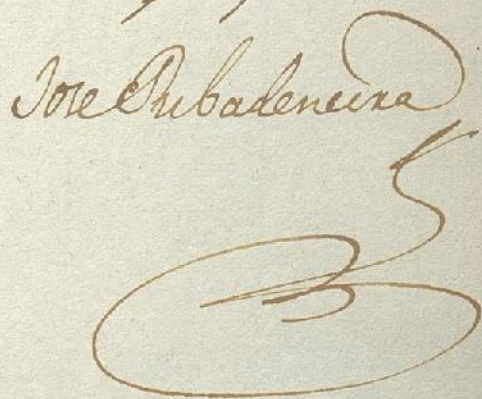 Jose Ribadeneira